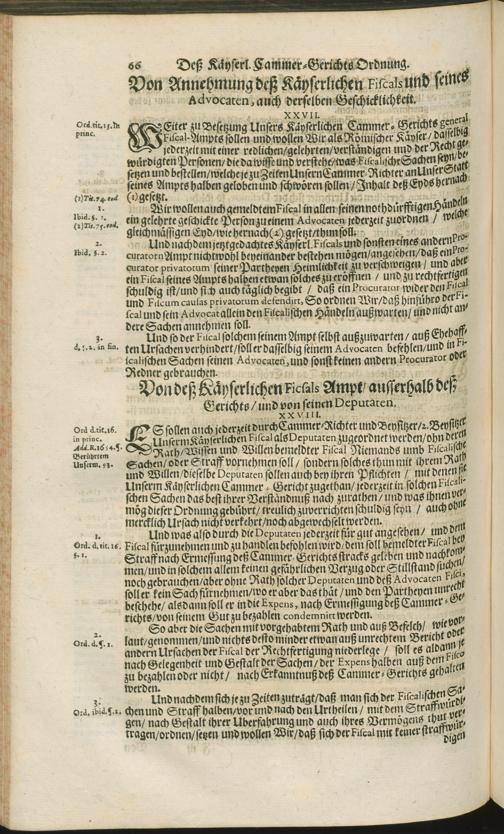 66 Deß Käyserl. Cammer-Gerichts Ordnung.
Von Annehmung deß Käyserlichen Fiscals und seines
Advocaten, auch derselben Geschicklichkeit.
XXVII.
Ord. tit. 15. in
princ.
WEiter zu Besetzung Unsers Käyserlichen Cammer-Gerichts general
Fiscal-Ampts sollen und wollen Wir als Römischer Käyser / dasselbig
jederzeit mit einer redlichen/gelehrten/verständigen und der Recht ge-
würdigten Personen/ die da wisse und verstehe/was Fiscalische Sachen seyn/be-
setzen und bestellen/welche je zu Zeiten Unsern Cammer-Richter an Unser Statt
seines Ampts halben geloben und schwören sollen / Inhalt deß Eyds hernach
(1) gesetzt.
(1) Tit. 74. eod.
1.
Ibid. §. 1.
(2) Tit. 75. eod.
Wir wollen auch gemeldtem Fiscal in allen seinen nothdürfftigen Händeln
ein gelehrte geschickte Person zu einem Advocaten jederzeit zuordnen / welche
gleichmässigen Eyd/wie hernach (2) gesetzt/thun soll.
2.
Ibid. §. 2.
Und nachdem jetztgedachtes Käyserl. Fiscals und sonsten eines andern Pro-
curatorn Ampt nicht wohl beyeinander bestehen mögen/angesehen/daß ein Pro-
curator privatorum seiner Partheyen Heimlichkeit zu verschweigen / und aber
ein Fiscal seines Ampts halben etwan solches zu eröffnen / und zu rechtfertigen
schuldig ist/und sich auch täglich begibt / daß ein Procurator wider den Fiscal
und Fiscum causas privatorum defendirt, So ordnen Wir/daß hinführo der Fi-
scal und sein Advocat allein den Fiscalischen Händeln außwarten/und nicht an-
dere Sachen annehmen soll.
3.
d. §. 2. in fin.
Und so der Fiscal solchem seinem Ampt selbst außzuwarten / auß Ehehaff-
ten Ursachen verhindert/soll er dasselbig seinem Advocaten befehlen/und in Fi-
scalischen Sachen seinen Advocaten, und sonst keinen andern Procurator oder
Redner gebrauchen.
Von deß Käyserlichen Fiscals Ampt / ausserhalb deß
Gerichts / und von seinen Deputaten.
XXVIII.
Ord. d. tit. 16.
in princ.
Add. R. 1654. §.
Berührtem
Unserm. 93.
ES sollen auch jederzeit durch Cammer-Richter und Beysitzer/2. Beysitzer
Unserm Käyserlichen Fiscal als Deputaten zugeordnet werden/ohn deren
Rath/Wissen und Willen bemeldter Fiscal Niemands umb Fiscalische
Sachen/oder Straff vornehmen soll / sondern solches thun mit ihrem Rath
und Willen/dieselbe Deputaten sollen auch bey ihren Pflichten / mit denen sie
Unserm Käyserlichen Cammer-Gericht zugethan/jederzeit in solchen Fiscali-
schen Sachen das best ihrer Verständnuß nach zurathen / und was ihnen ver-
mög dieser Ordnung gebührt/ treulich zuverrichten schuldig seyn / auch ohne
mercklich Ursach nicht verkehrt/noch abgewechselt werden.
1.
Ord. d. tit. 16.
§. 1.
Und was also durch die Deputaten jederzeit für gut angesehen / und dem
Fiscal fürzunehmen und zu handlen befohlen wird/ dem soll bemeldter Fiscal bey
Straff nach Ermessung deß Cammer-Gerichts stracks geleben und nachkom-
men/und in solchem allem keinen gefährlichen Verzug oder Stillstand suchen/
noch gebrauchen/aber ohne Rath solcher Deputaten und deß Advocaten Fisci,
soll er kein Sach fürnehmen/wo er aber das thät / und den Partheyen unrecht
beschehe/ alsdann soll er in die Expens, nach Ermessigung deß Cammer-Ge-
richts/von seinem Gut zu bezahlen condemnirt werden.
2.
Ord. d. §. 1.
So aber die Sachen mit vorgehabtem Rath und auß Befelch/ wie vor-
laut/genommen/und nichts desto minder etwan auß unrechtem Bericht oder
andern Ursachen der Fiscal der Rechtfertigung niederlege / soll es aldann je
nach Gelegenheit und Gestalt der Sachen/der Expens halben auß dem Fisco
zu bezahlen oder nicht / nach Erkanntnuß deß Cammer-Gerichts gehalten
werden.
3.
Ord. ibid. §. 2.
Und nachdem sich je zu Zeiten zuträgt/daß man sich der Fiscalischen Sa-
chen und Straff halben/vor und nach den Urtheilen / mit dem Straffwürdi-
gen/ nach Gestalt ihrer Uberfahrung und auch ihres Vermögens thut ver-
tragen/ordnen/setzen und wollen Wir/daß sich der Fiscal mit keiner straffwür-
digen